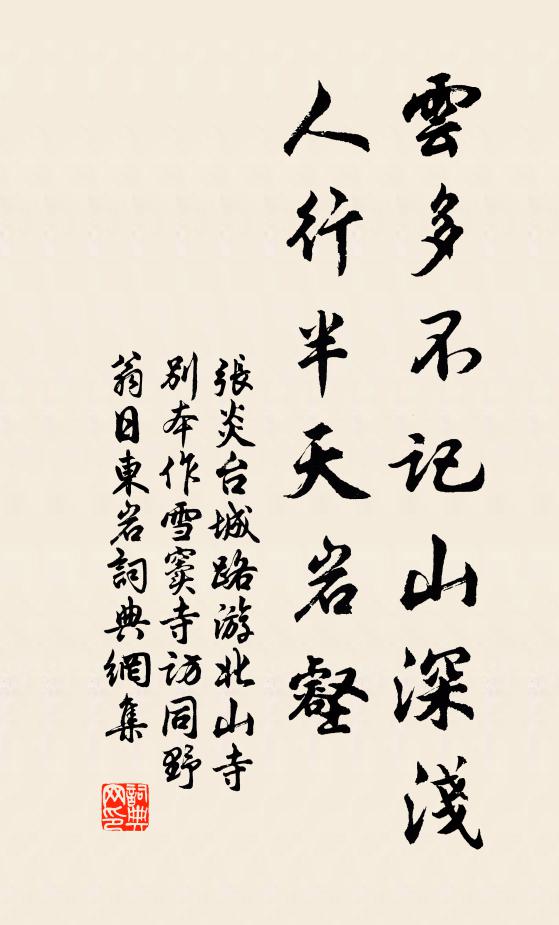 雲多不記山深淺
人行半天岩壑
張炎台城路游北山寺
別本作雪竇寺訪同野
翁日東岩詞典網集
詞典
网印